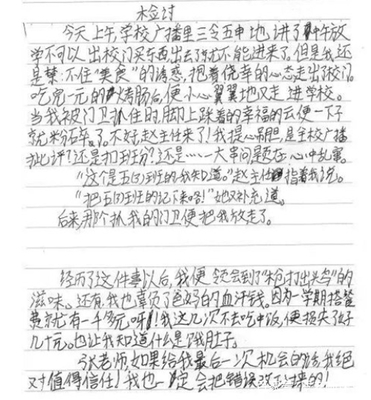 检讨
今天上午学校广播里三令五申地讲了中午放
学不可以出校门买东西出去了就不能进来了。但是我还
是禁不住“美食”的诱惑，抱着侥幸的心态走出校门。
吃完一元的烤肠后便小心翼翼地又走进学校。
当我被门卫抓住时，脚上踩着的幸福的云便一下子
就粉碎了。不好，赵主任来了！我提心吊胆，是全校广播
批评？还是扣班分？还是……一大串问题在心中乱窜。
“这个是五(1)班的我知道。”赵主任指着我说。
“把五(1)班的记下来咯！”她又补充道。
后来那个抓我的门卫便把我放走了。
经历了这件事以后，我便领会到了“枪打出头鸟”的
滋味。还有我也辜负了爸妈的血汗钱。因为一学期搭餐
费就有一千多元呀！我这几次不去吃中饭，便损失了好
几十元。也让我知道什么是饿肚子。
张老师如果给我最后一次机会的话我绝
对值得信任！我也一定会把错误改过来的！